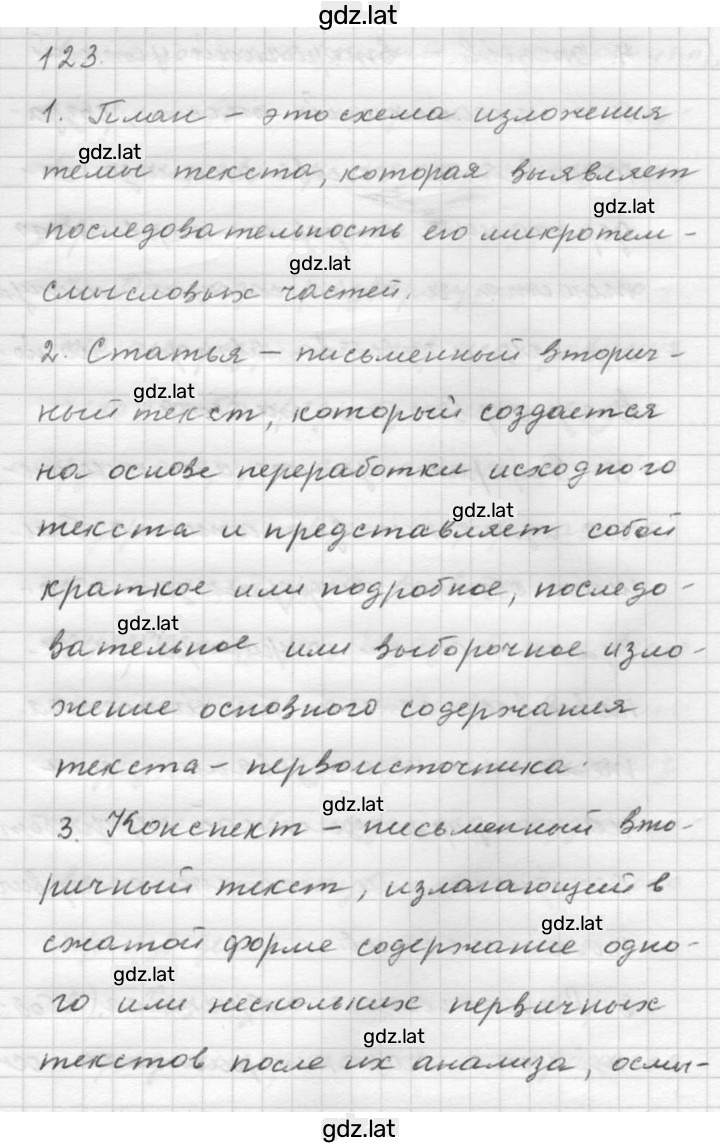 gdz.lat
123.
1. План – это схема изложения
gdz.lat
темы текста, которая выявляет
gdz.lat
последовательность его микротем –
gdz.lat
смысловых частей.
2. Статья – письменный вторич-
gdz.lat
ный текст, который создается
на основе переработки исходного
gdz.lat
текста и представляет собой
краткое или подробное, последо-
gdz.lat
вательное или выборочное изло-
жение основного содержания
текста – первоисточника.
gdz.lat
3. Конспект – письменный вто-
ричный текст, излагающий в
gdz.lat
сжатой форме содержание одно-
gdz.lat
го или нескольких первичных
gdz.lat
текстов после их анализа, осмы-
gdz.lat